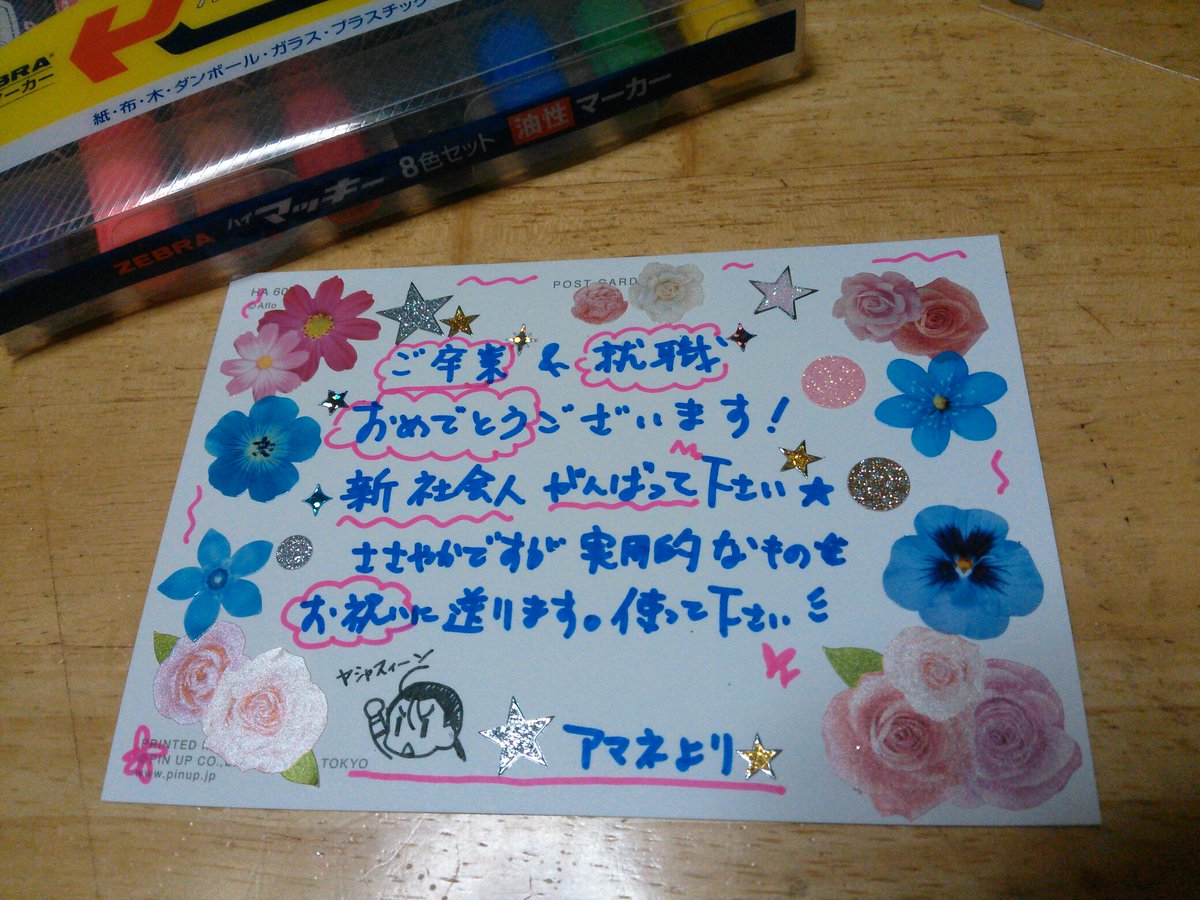 ZEBRA
マーカー
紙・布・木・ダンボール・ガラス・プラスチック
ZEBRA ハイ マッキー 8色セット 油性 マーカー
HA 60
©Aflo
POST CARD
ご卒業 & 就職
おめでとうございます!
新社会人 がんばって下さい★
ささやかですが 実用的なものを
お祝いに送ります。使って下さい
ヤシャスィーン
アマネより
PRINTED
©PIN UP CO., TOKYO
www.pinup.jp